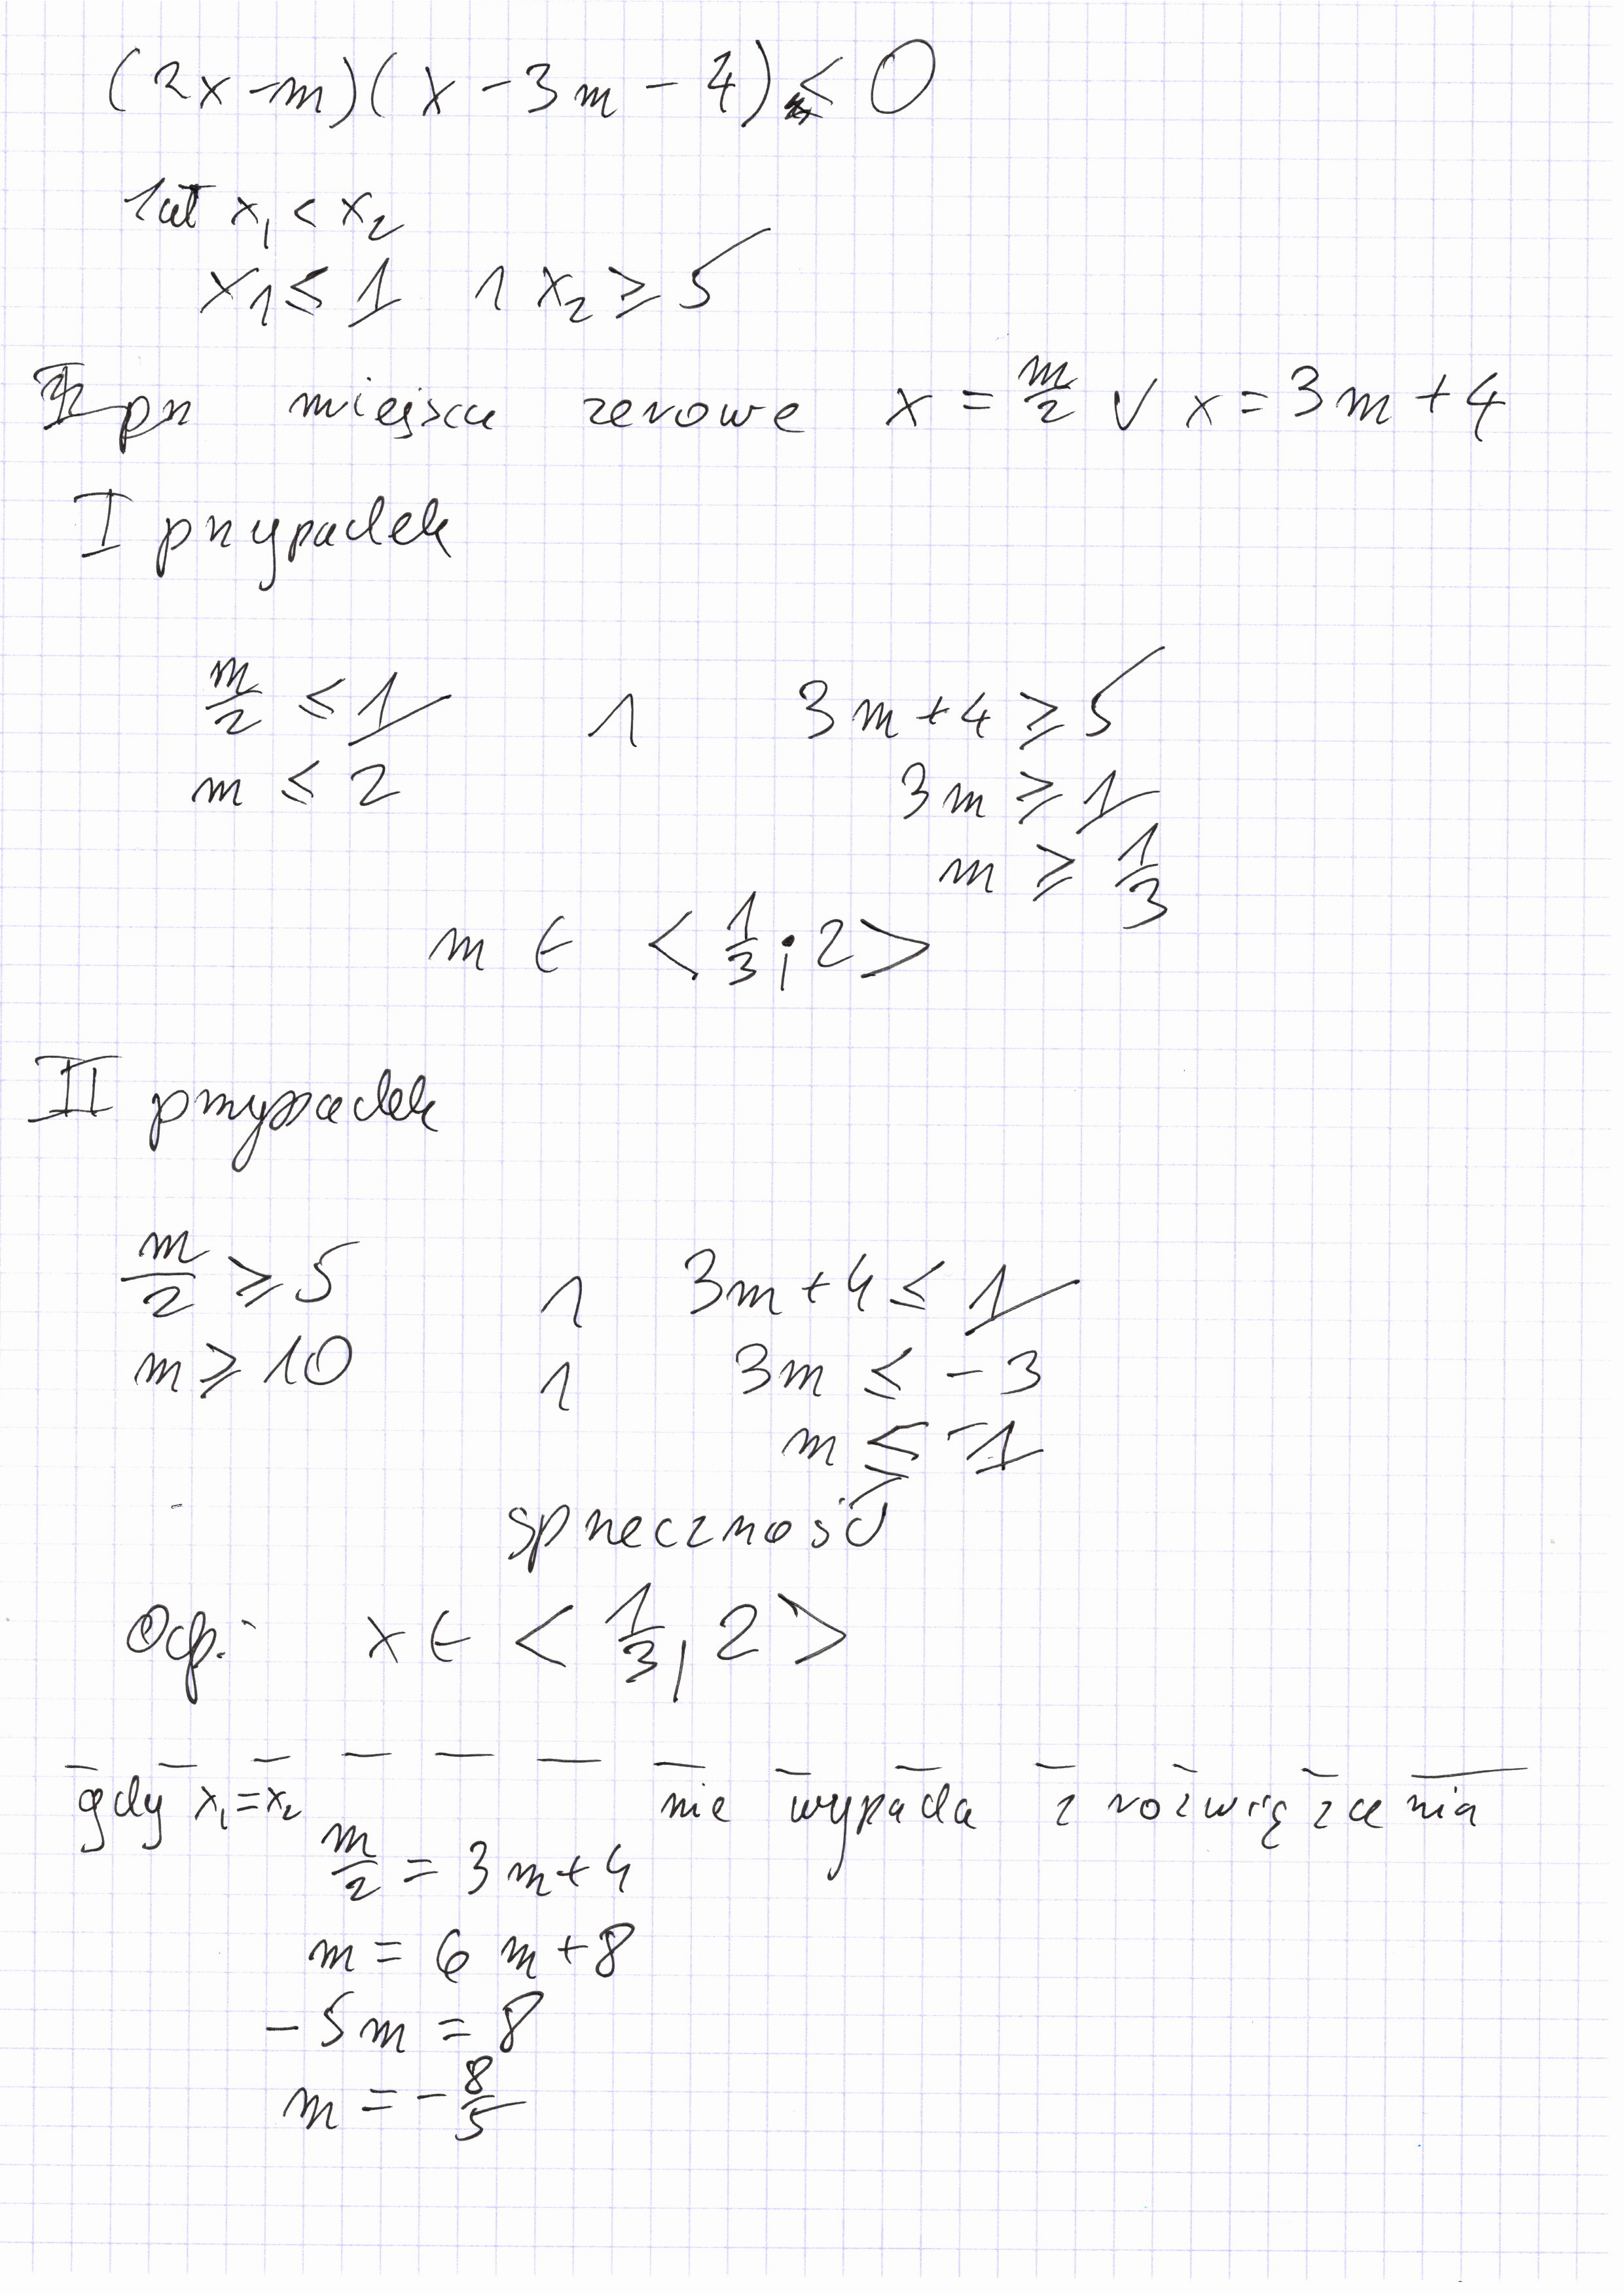 (2x-m)(x-3m-4) < 0
x₁ < x₂
x₁ ≤ 1 ∧ x₂ ≥ 5
miejsca zerowe x = m/2 ∨ x = 3m+4
I przypadek
m/2 ≤ 1 ∧ 3m+4 ≥ 5
m ≤ 2 3m ≥ 1
m ≥ 1/3
m ∈ <1/3; 2>
II przypadek
m/2 ≥ 5 ∧ 3m+4 ≤ 1
m ≥ 10 ∧ 3m ≤ -3
m ≤ -1
sprzeczność
Odp.: x ∈ <1/3, 2>
gdy x₁=x₂ nie wypada z rozwiązzenia
m/2 = 3m+4
m = 6m+8
-5m = 8
m = -8/5